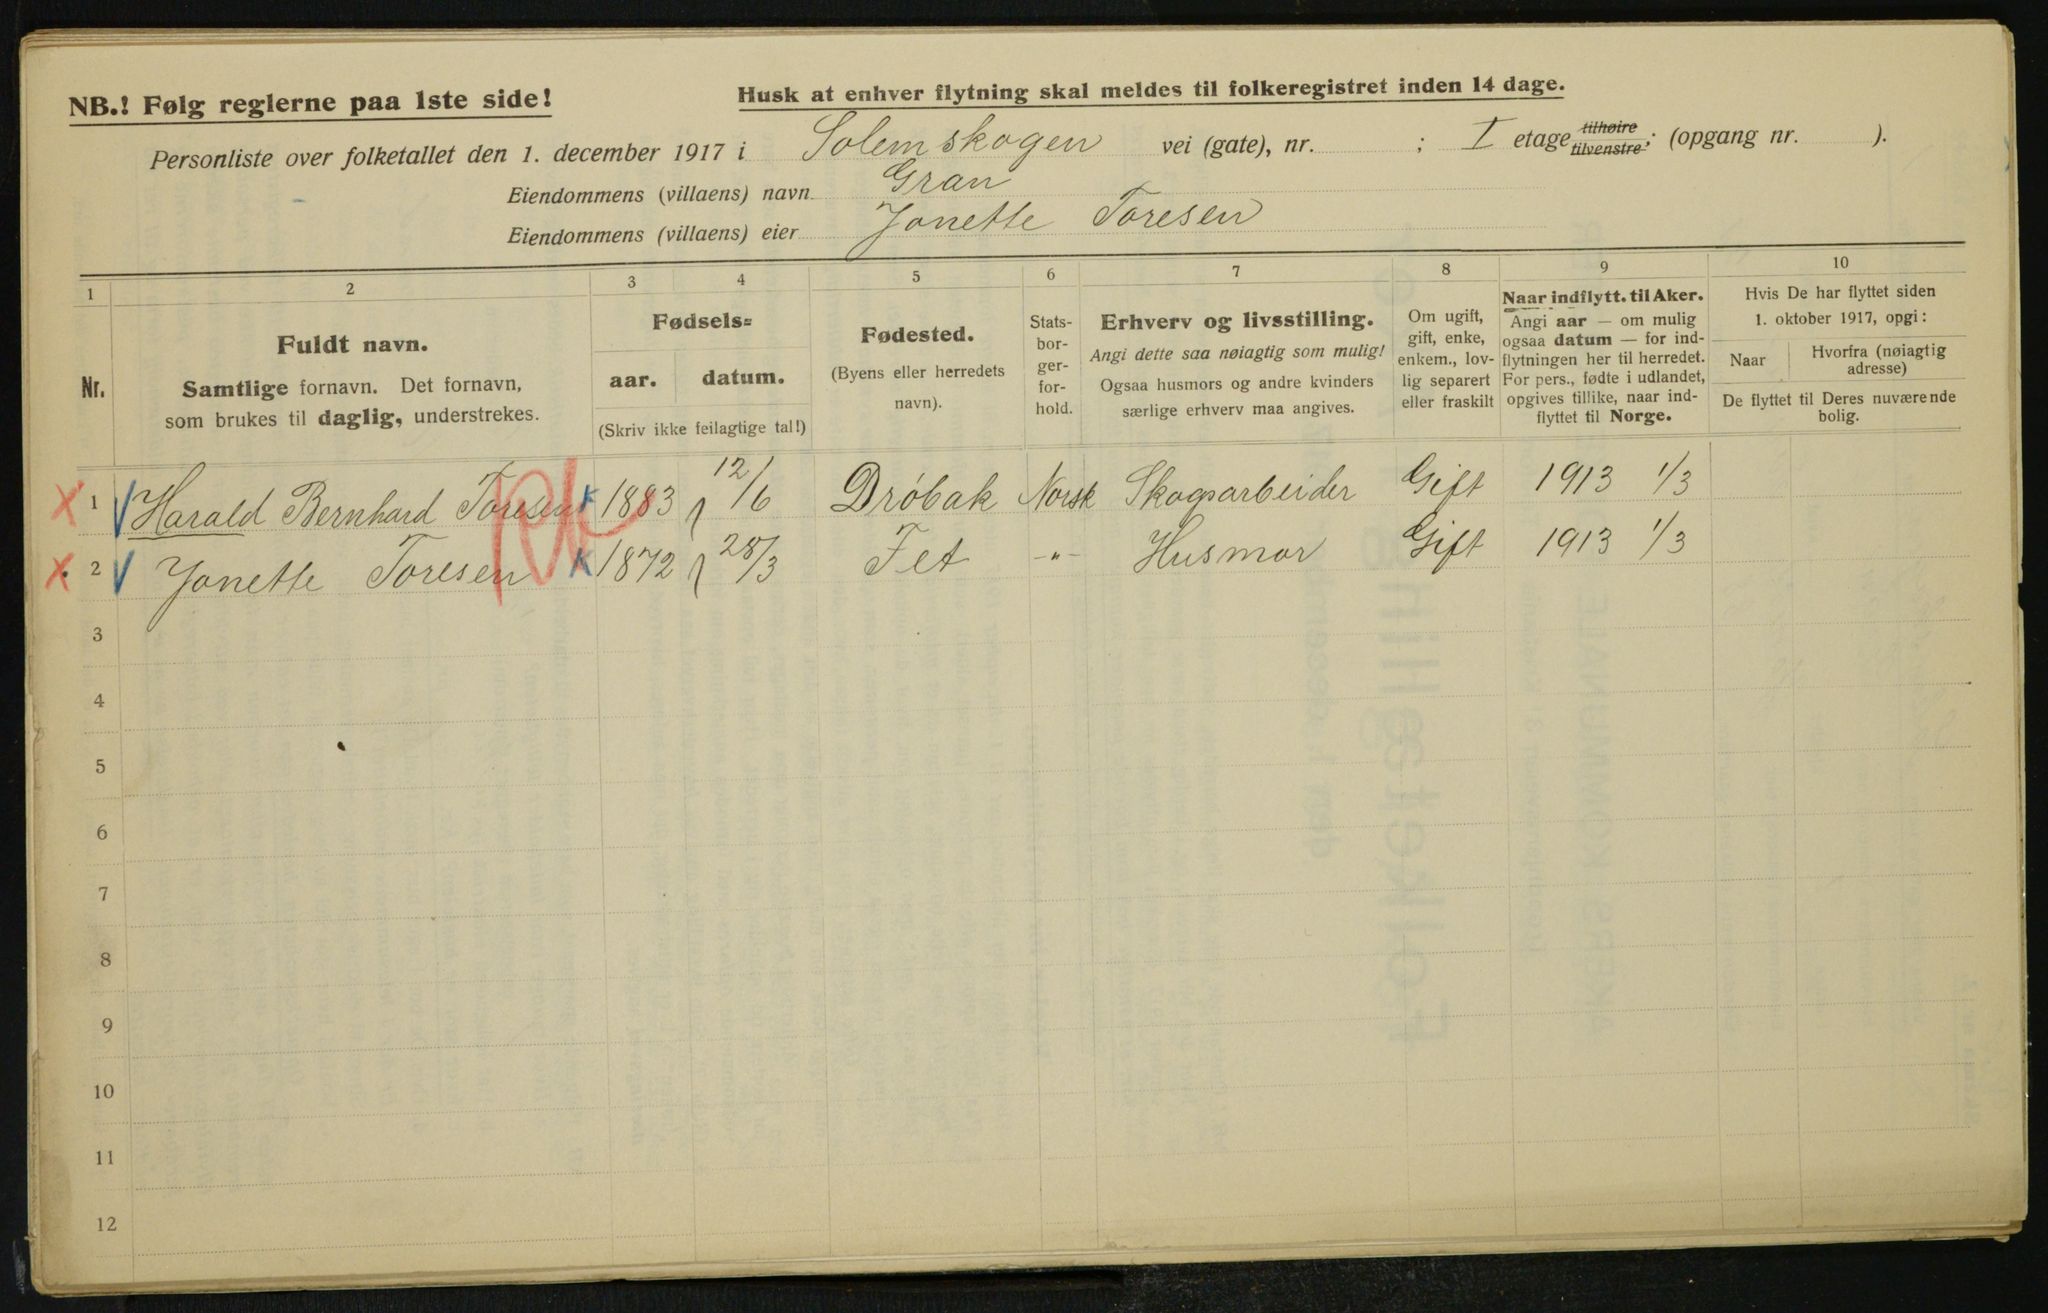 NB.! Følg reglerne paa 1ste side!
Husk at enhver flytning skal meldes til folkeregistret inden 14 dage.
Personliste over folketallet den 1. december 1917 i Solemskogen vei (gate), nr. ; I etage tilhøire tilvenstre; (opgang nr. ).
Eiendommens (villaens) navn Gran
Eiendommens (villaens) eier Jonette Toresen
1 2 3 4 5 6 7 8 9 10
Nr.
Fuldt navn.
Samtlige fornavn. Det fornavn,
som brukes til daglig, understrekes.
Fødsels=
aar. datum.
(Skriv ikke feilagtige tal!)
Fødested.
(Byens eller herredets
navn).
Stats-
bor-
ger-
for-
hold.
Erhverv og livsstilling.
Angi dette saa nøiagtig som mulig!
Ogsaa husmors og andre kvinders
særlige erhverv maa angives.
Om ugift,
gift, enke,
enkem., lov-
lig separert
eller fraskilt
Naar indflytt. til Aker.
Angi aar — om mulig
ogsaa datum — for ind-
flytningen her til herredet.
For pers., fødte i udlandet,
opgives tillike, naar ind-
flyttet til Norge.
Hvis De har flyttet siden
1. oktober 1917, opgi:
Naar
Hvorfra (nøiagtig
adresse)
De flyttet til Deres nuværende
bolig.
1 Harald Bernhard Toresen K 1883 12/6 Dröbak Norsk Skogsarbeider Gift 1913 1/3
2 Jonette Toresen K 1872 28/3 Fet -"- Husmor Gift 1913 1/3
3
4
5
6
7
8
9
10
11
12